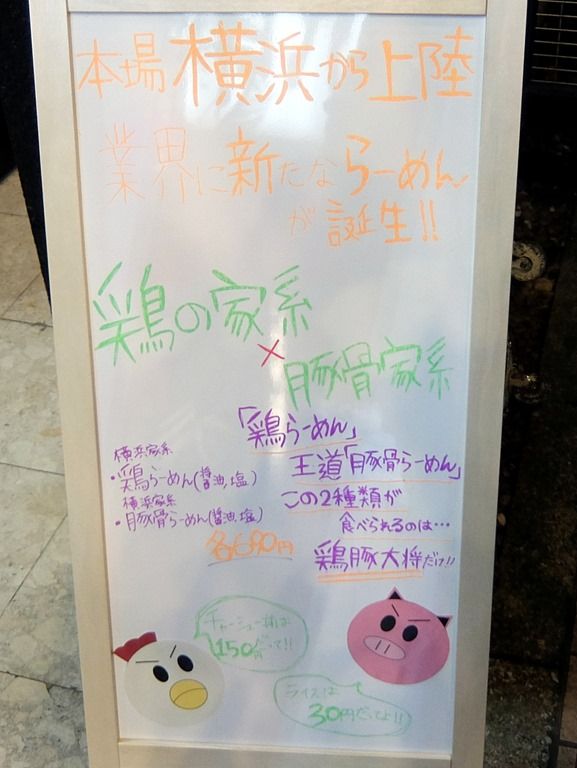 本場横浜から上陸
業界に新たならーめん
が誕生!!
鶏の家系
×
豚骨家系
「鶏らーめん」
王道「豚骨らーめん」
この2種類が
食べられるのは…
鶏豚大将だけ!!
横浜家系
・鶏らーめん(醤油,塩)
横浜家系
・豚骨らーめん(醤油,塩)
各690円
チャーシュー
150
って!!
ライスは
30円だってよ!!